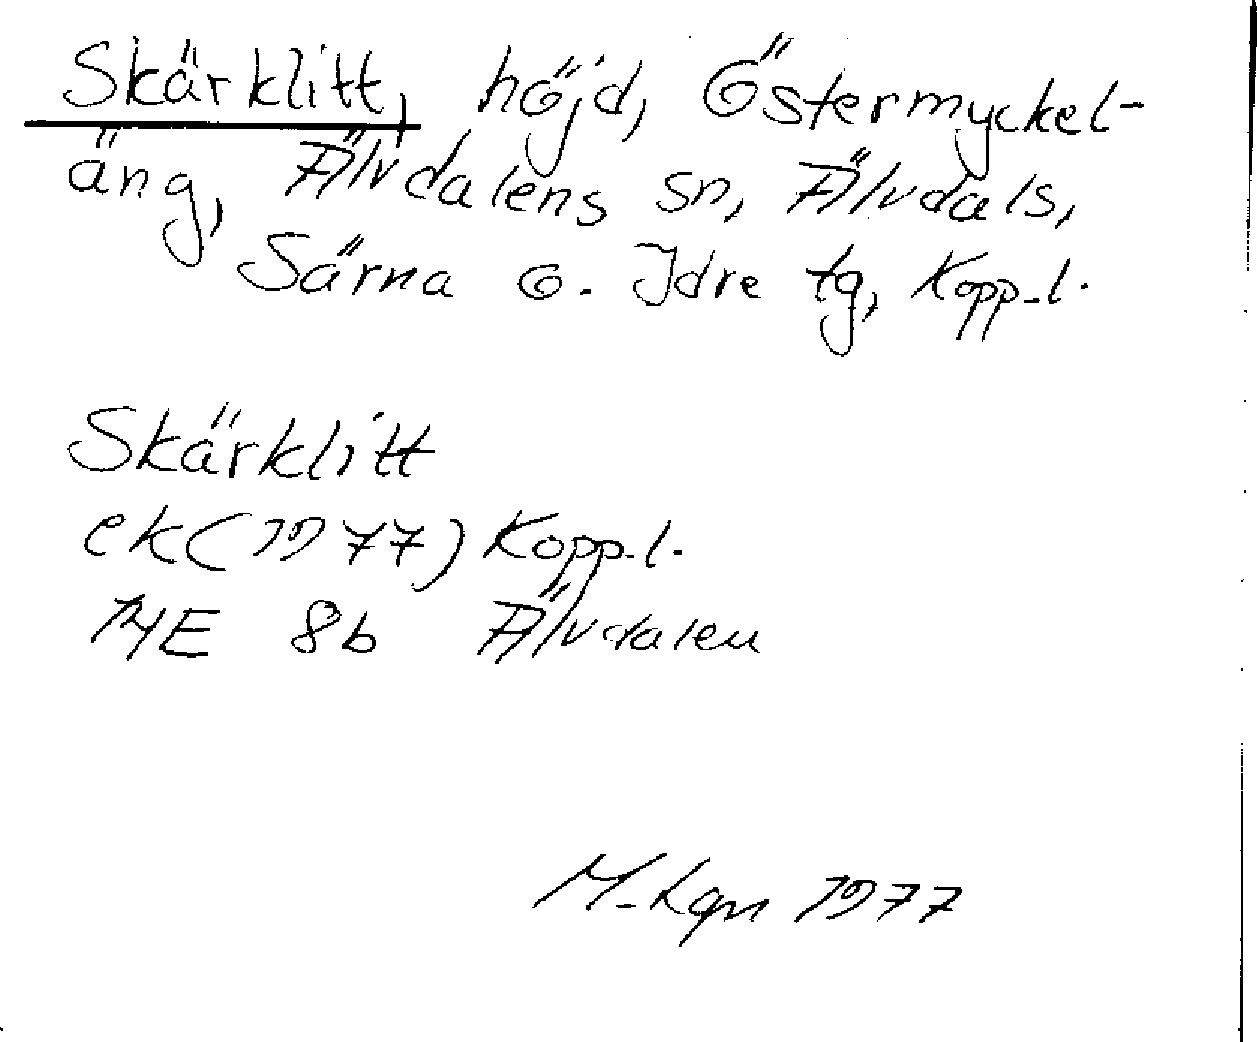 Skärklitt, höjd, Östermyckel-
äng, Älvdalens sn, Älvdals,
Särna o. Idre tg, Kopp.l.
Skärklitt
ek(1977) Kopp.l.
14E 8b Älvdalen
M.Lgn 1977